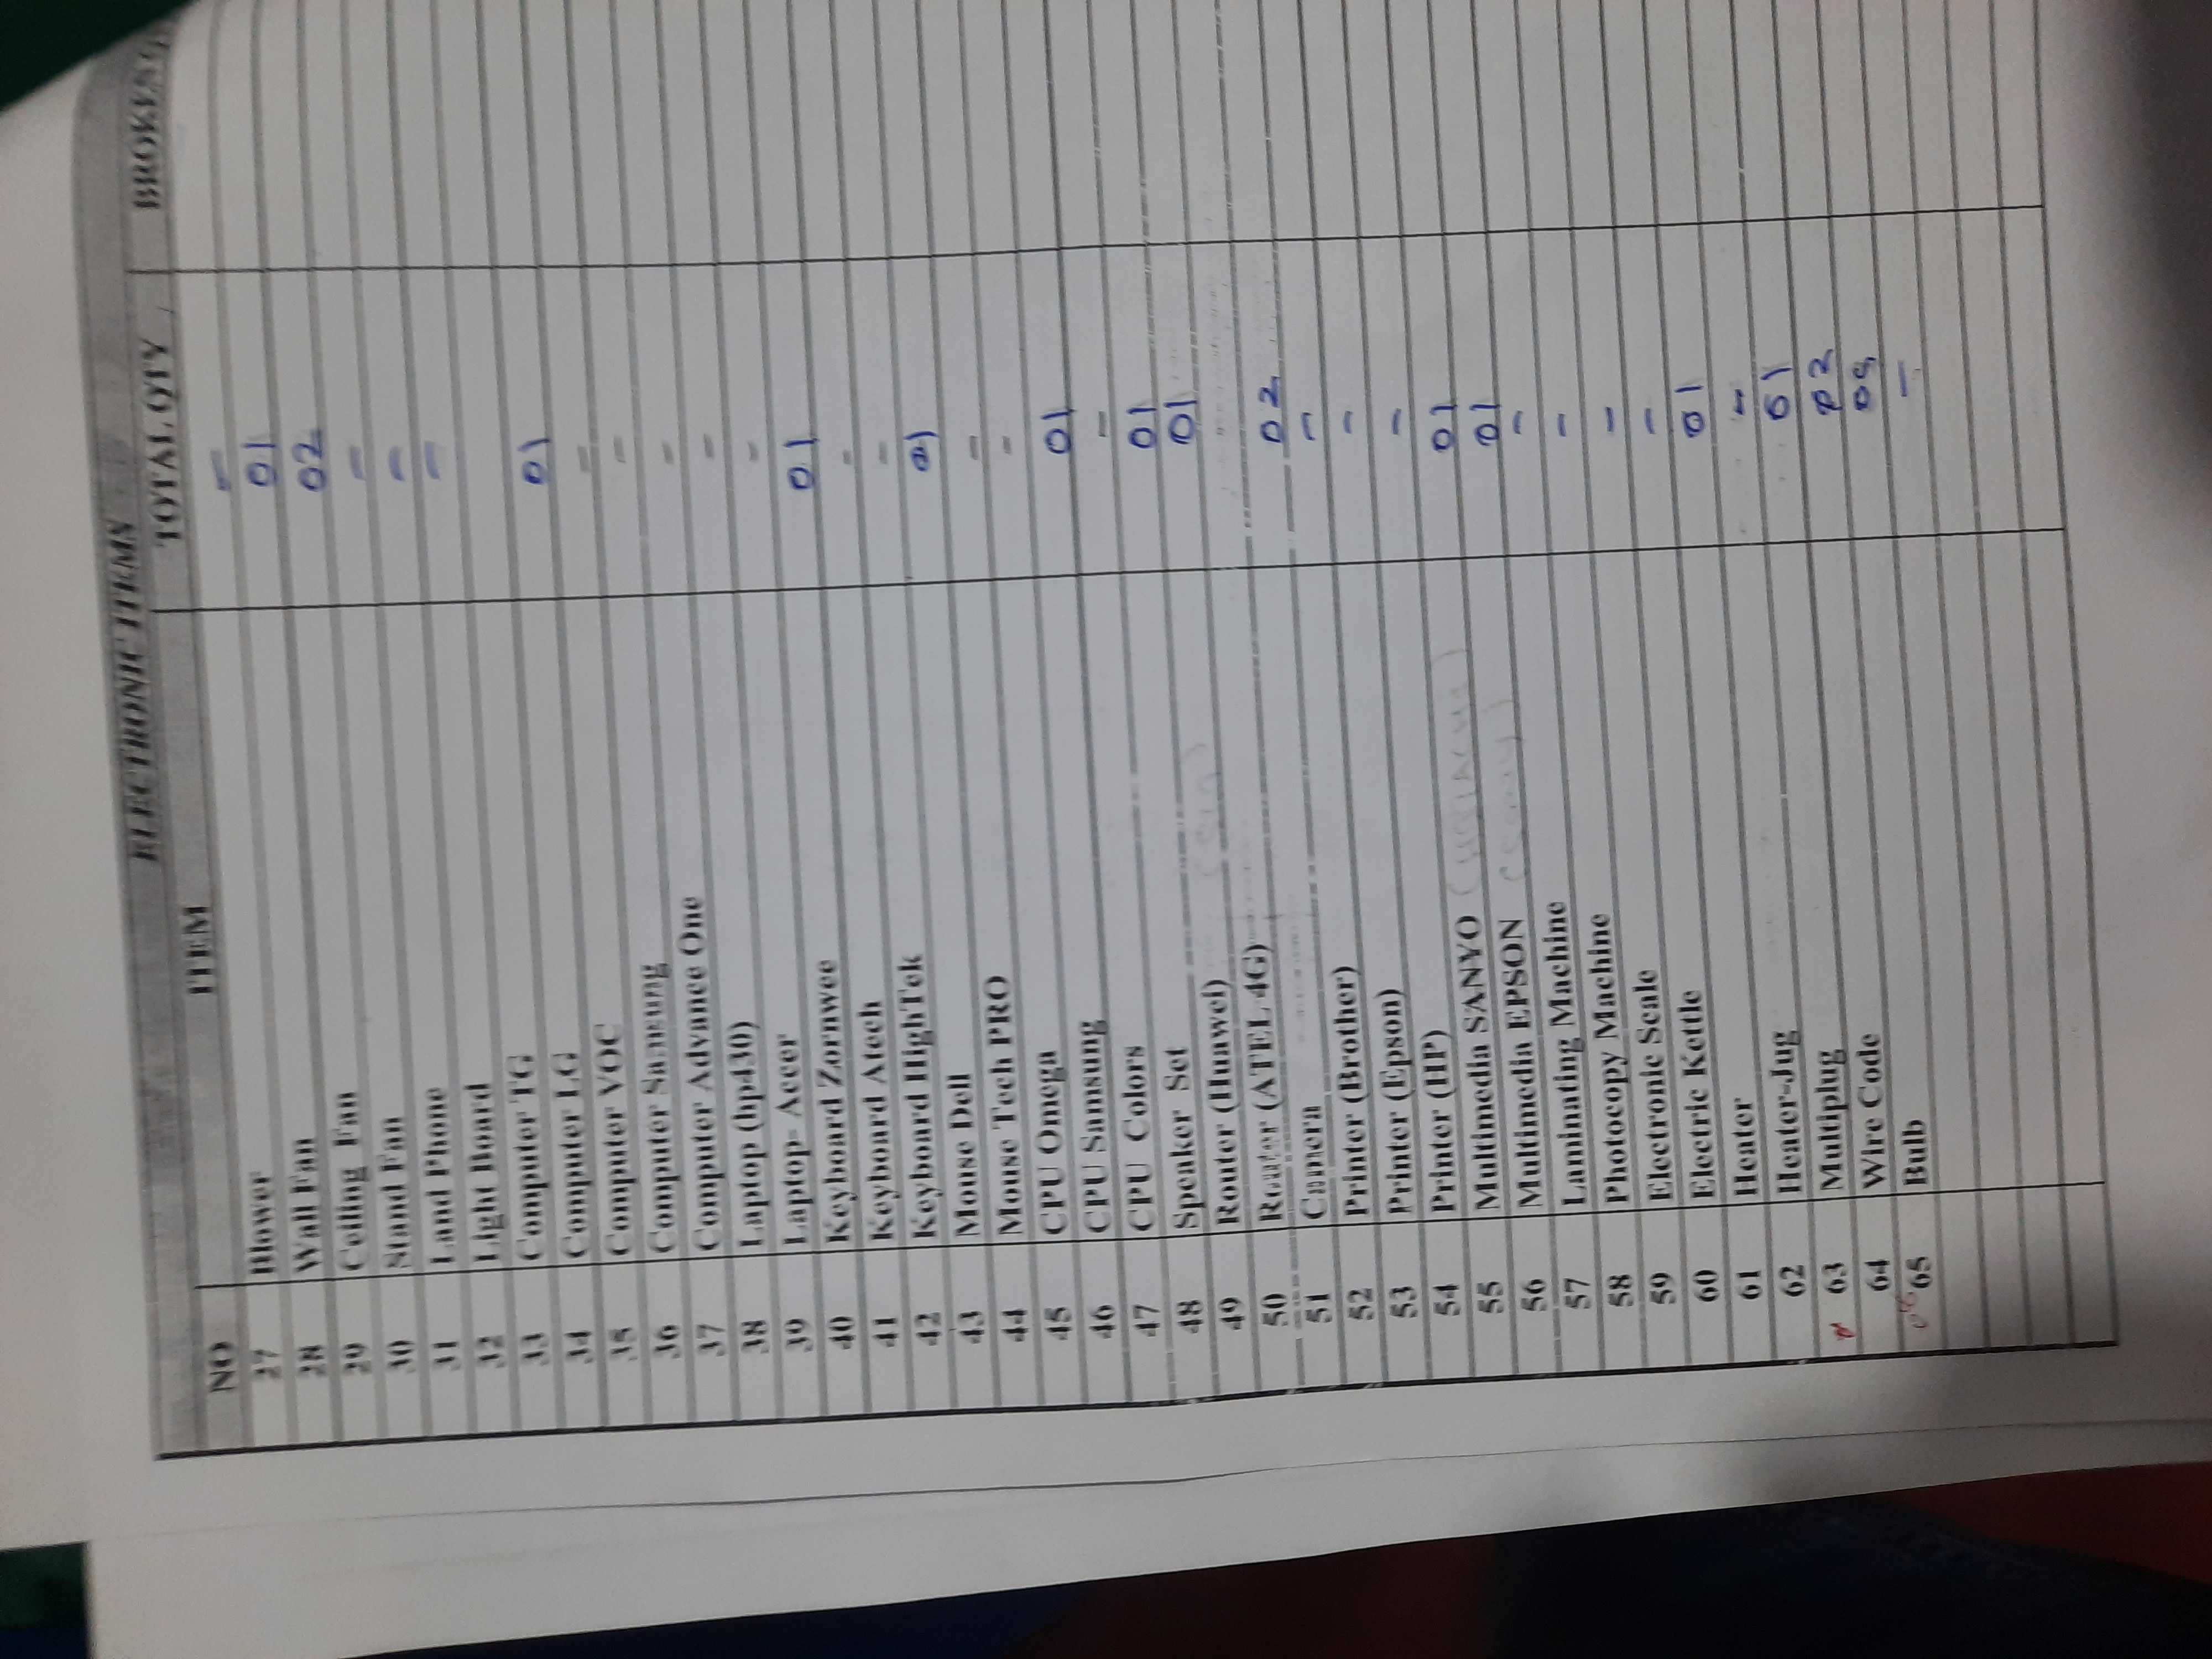 ELECTRONIC ITEMS
NO ITEM TOTAL QTY
-
27 Blower 01
28 Wall Fan 02
29 Ceiling Fan -
30 Stand Fan -
31 Land Phone -
32 Light Board
33 Computer TG 01
34 Computer LG -
35 Computer VOC -
36 Computer Samsung -
37 Computer Advance One -
38 Laptop (hp430) -
39 Laptop- Accer 01
40 Keyboard Zornwee -
41 Keyboard Atech -
42 Keyboard HighTek 01
43 Mouse Dell -
44 Mouse Tech PRO -
45 CPU Omega 01
46 CPU Samsung -
47 CPU Colors 01
48 Speaker Set 01
49 Router (Huawei)
50 Router (ATEL 4G) 02
51 Camera -
52 Printer (Brother) -
53 Printer (Epson) -
54 Printer (HP) 01
55 Multimedia SANYO 01
56 Multimedia EPSON -
57 Laminating Machine -
58 Photocopy Machine -
59 Electronic Scale -
60 Electric Kettle 01
61 Heater -
62 Heater-Jug 01
63 Multiplug 02
64 Wire Code 05
65 Bulb -